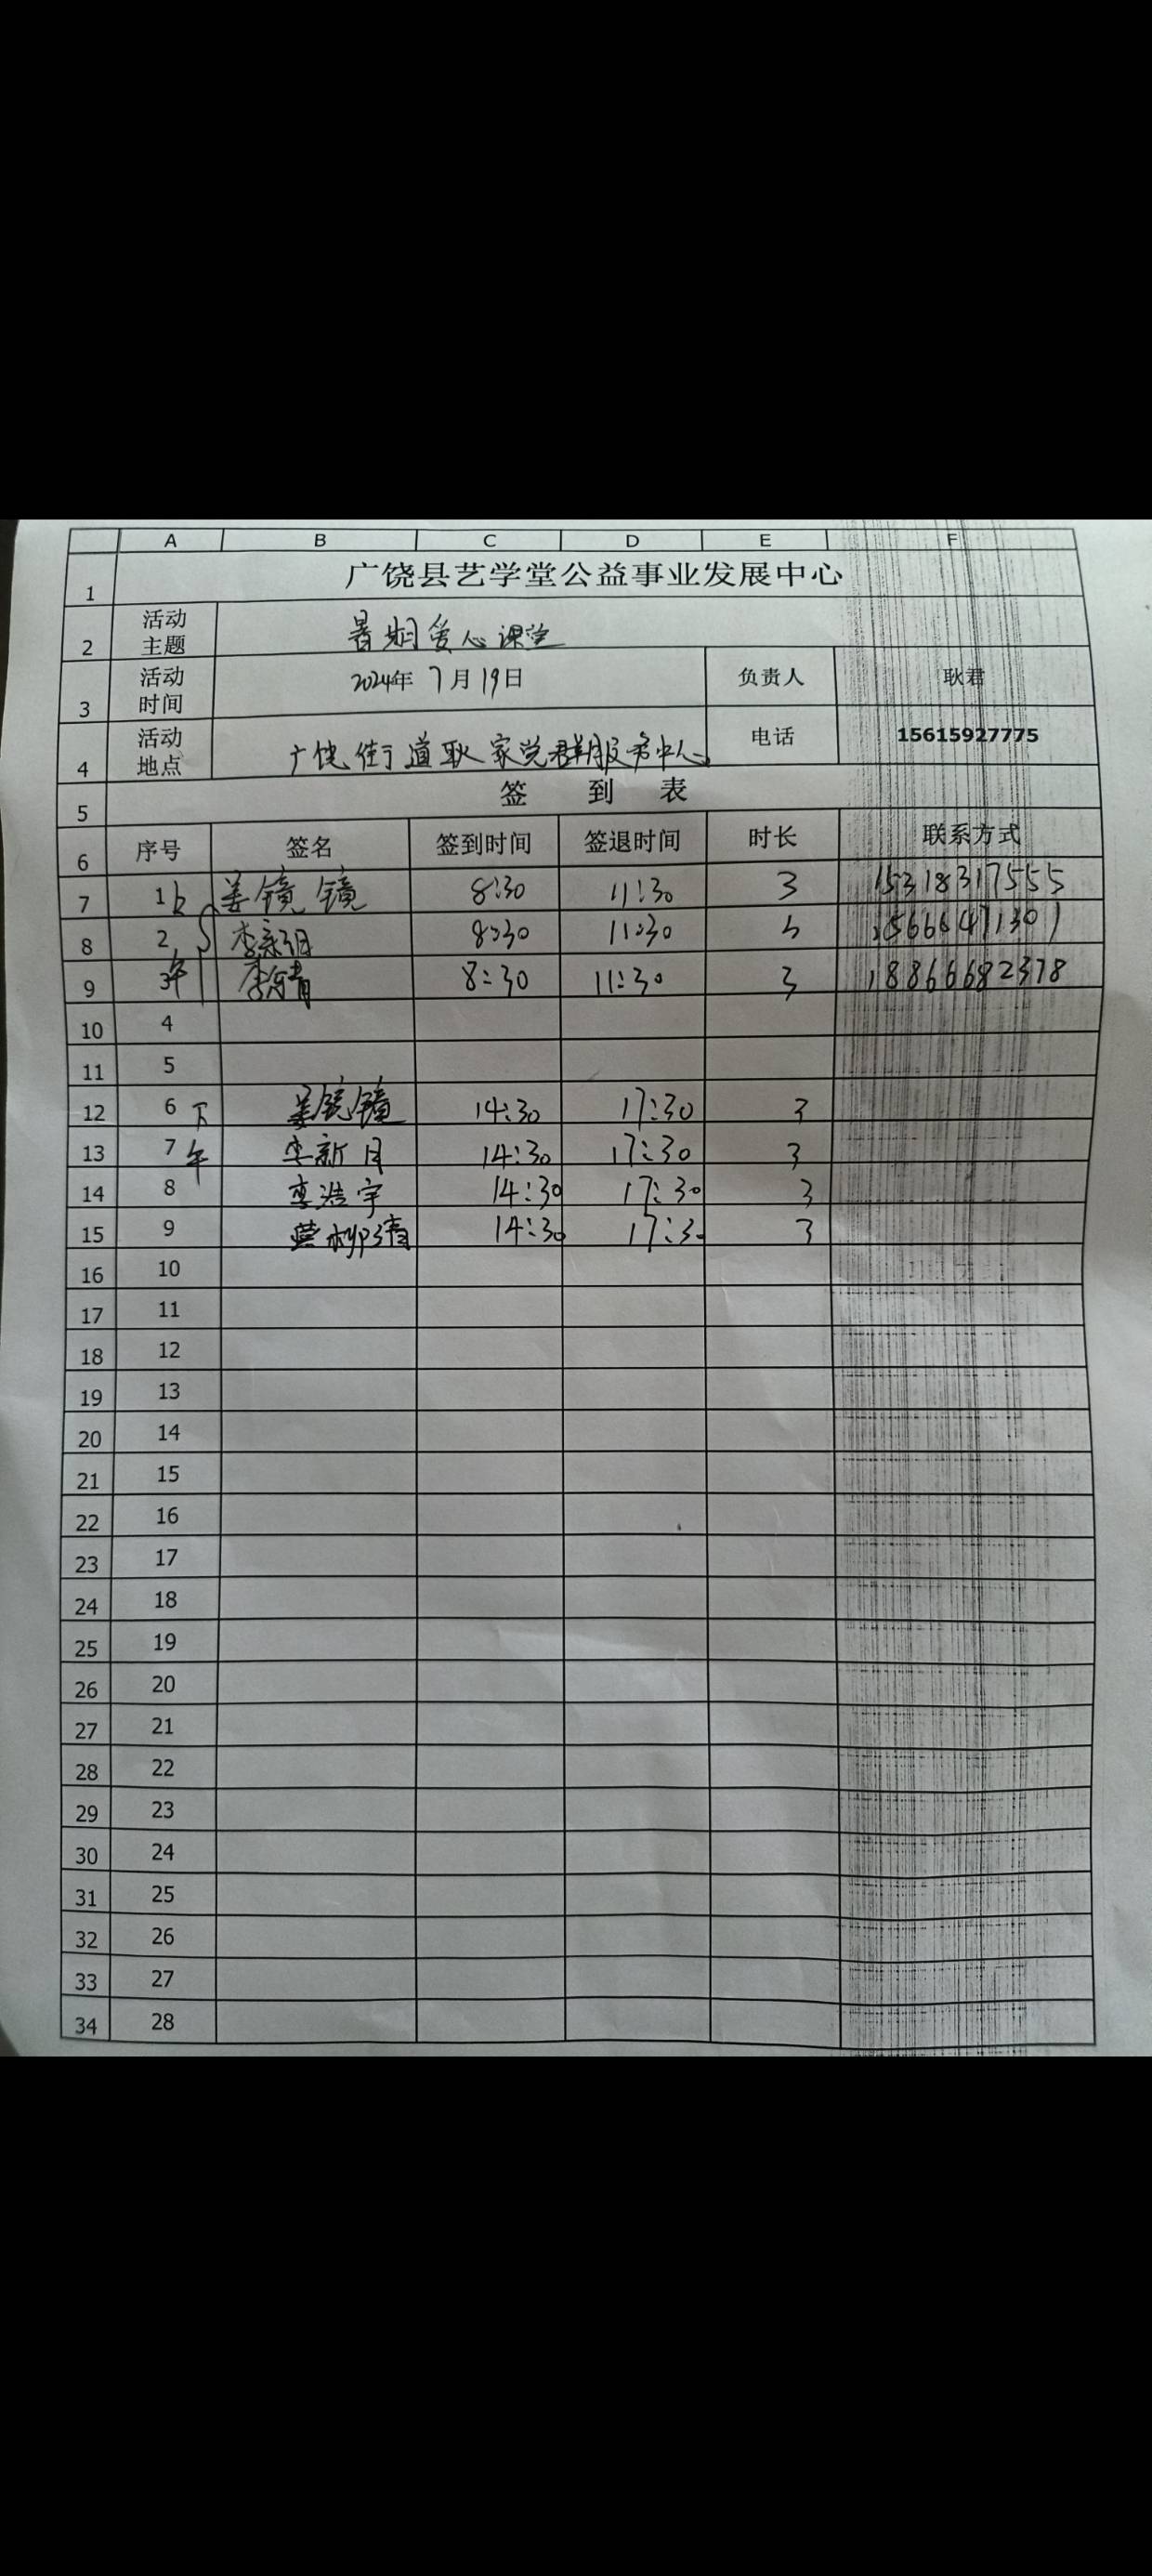 A B C D E F
1 广饶县艺学堂公益事业发展中心
2 活动主题 暑期爱心课堂
3 活动时间 2024年 7月19日 负责人 耿君
4 活动地点 广饶街道耿家党群服务中心 电话 15615927775
5 签 到 表
6 序号 签名 签到时间 签退时间 时长 联系方式
7 1 上 姜镜镜 8:30 11:30 3 15318317555
8 2 李新月 8:30 11:30 3 15666471301
9 3 午 李 青 8:30 11:30 3 18866682378
10 4
11 5
12 6 下 姜镜镜 14:30 17:30 3
13 7 午 李新月 14:30 17:30 3
14 8 李浩宇 14:30 17:30 3
15 9 柳清 14:30 17:30 3
16 10
17 11
18 12
19 13
20 14
21 15
22 16
23 17
24 18
25 19
26 20
27 21
28 22
29 23
30 24
31 25
32 26
33 27
34 28